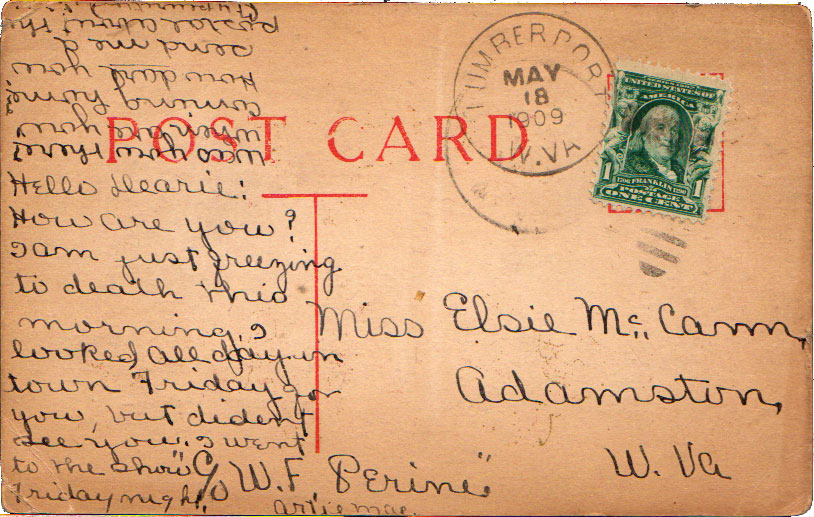 LUMBERPORT
MAY
18
1909
W. VA.
UNITED STATES OF
AMERICA
1706 FRANKLIN 1790
1 POSTAGE 1
ONE CENT
POST CARD
Hello Dearie:
How are you?
I am just freezing
to death this
morning, I
looked all day in
town Friday for
you, but dident
see you. I went
to the show
Friday night,
was you there?
you
coming home?
How dare you
send me a
postal about the
Artie Mae.
Miss Elsie McCann,
Adamston,
W. Va
"C/O W.F. Perine"